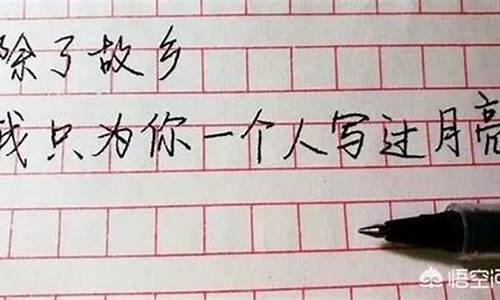 除了故乡
我只为你一个人写过月亮
悟空问